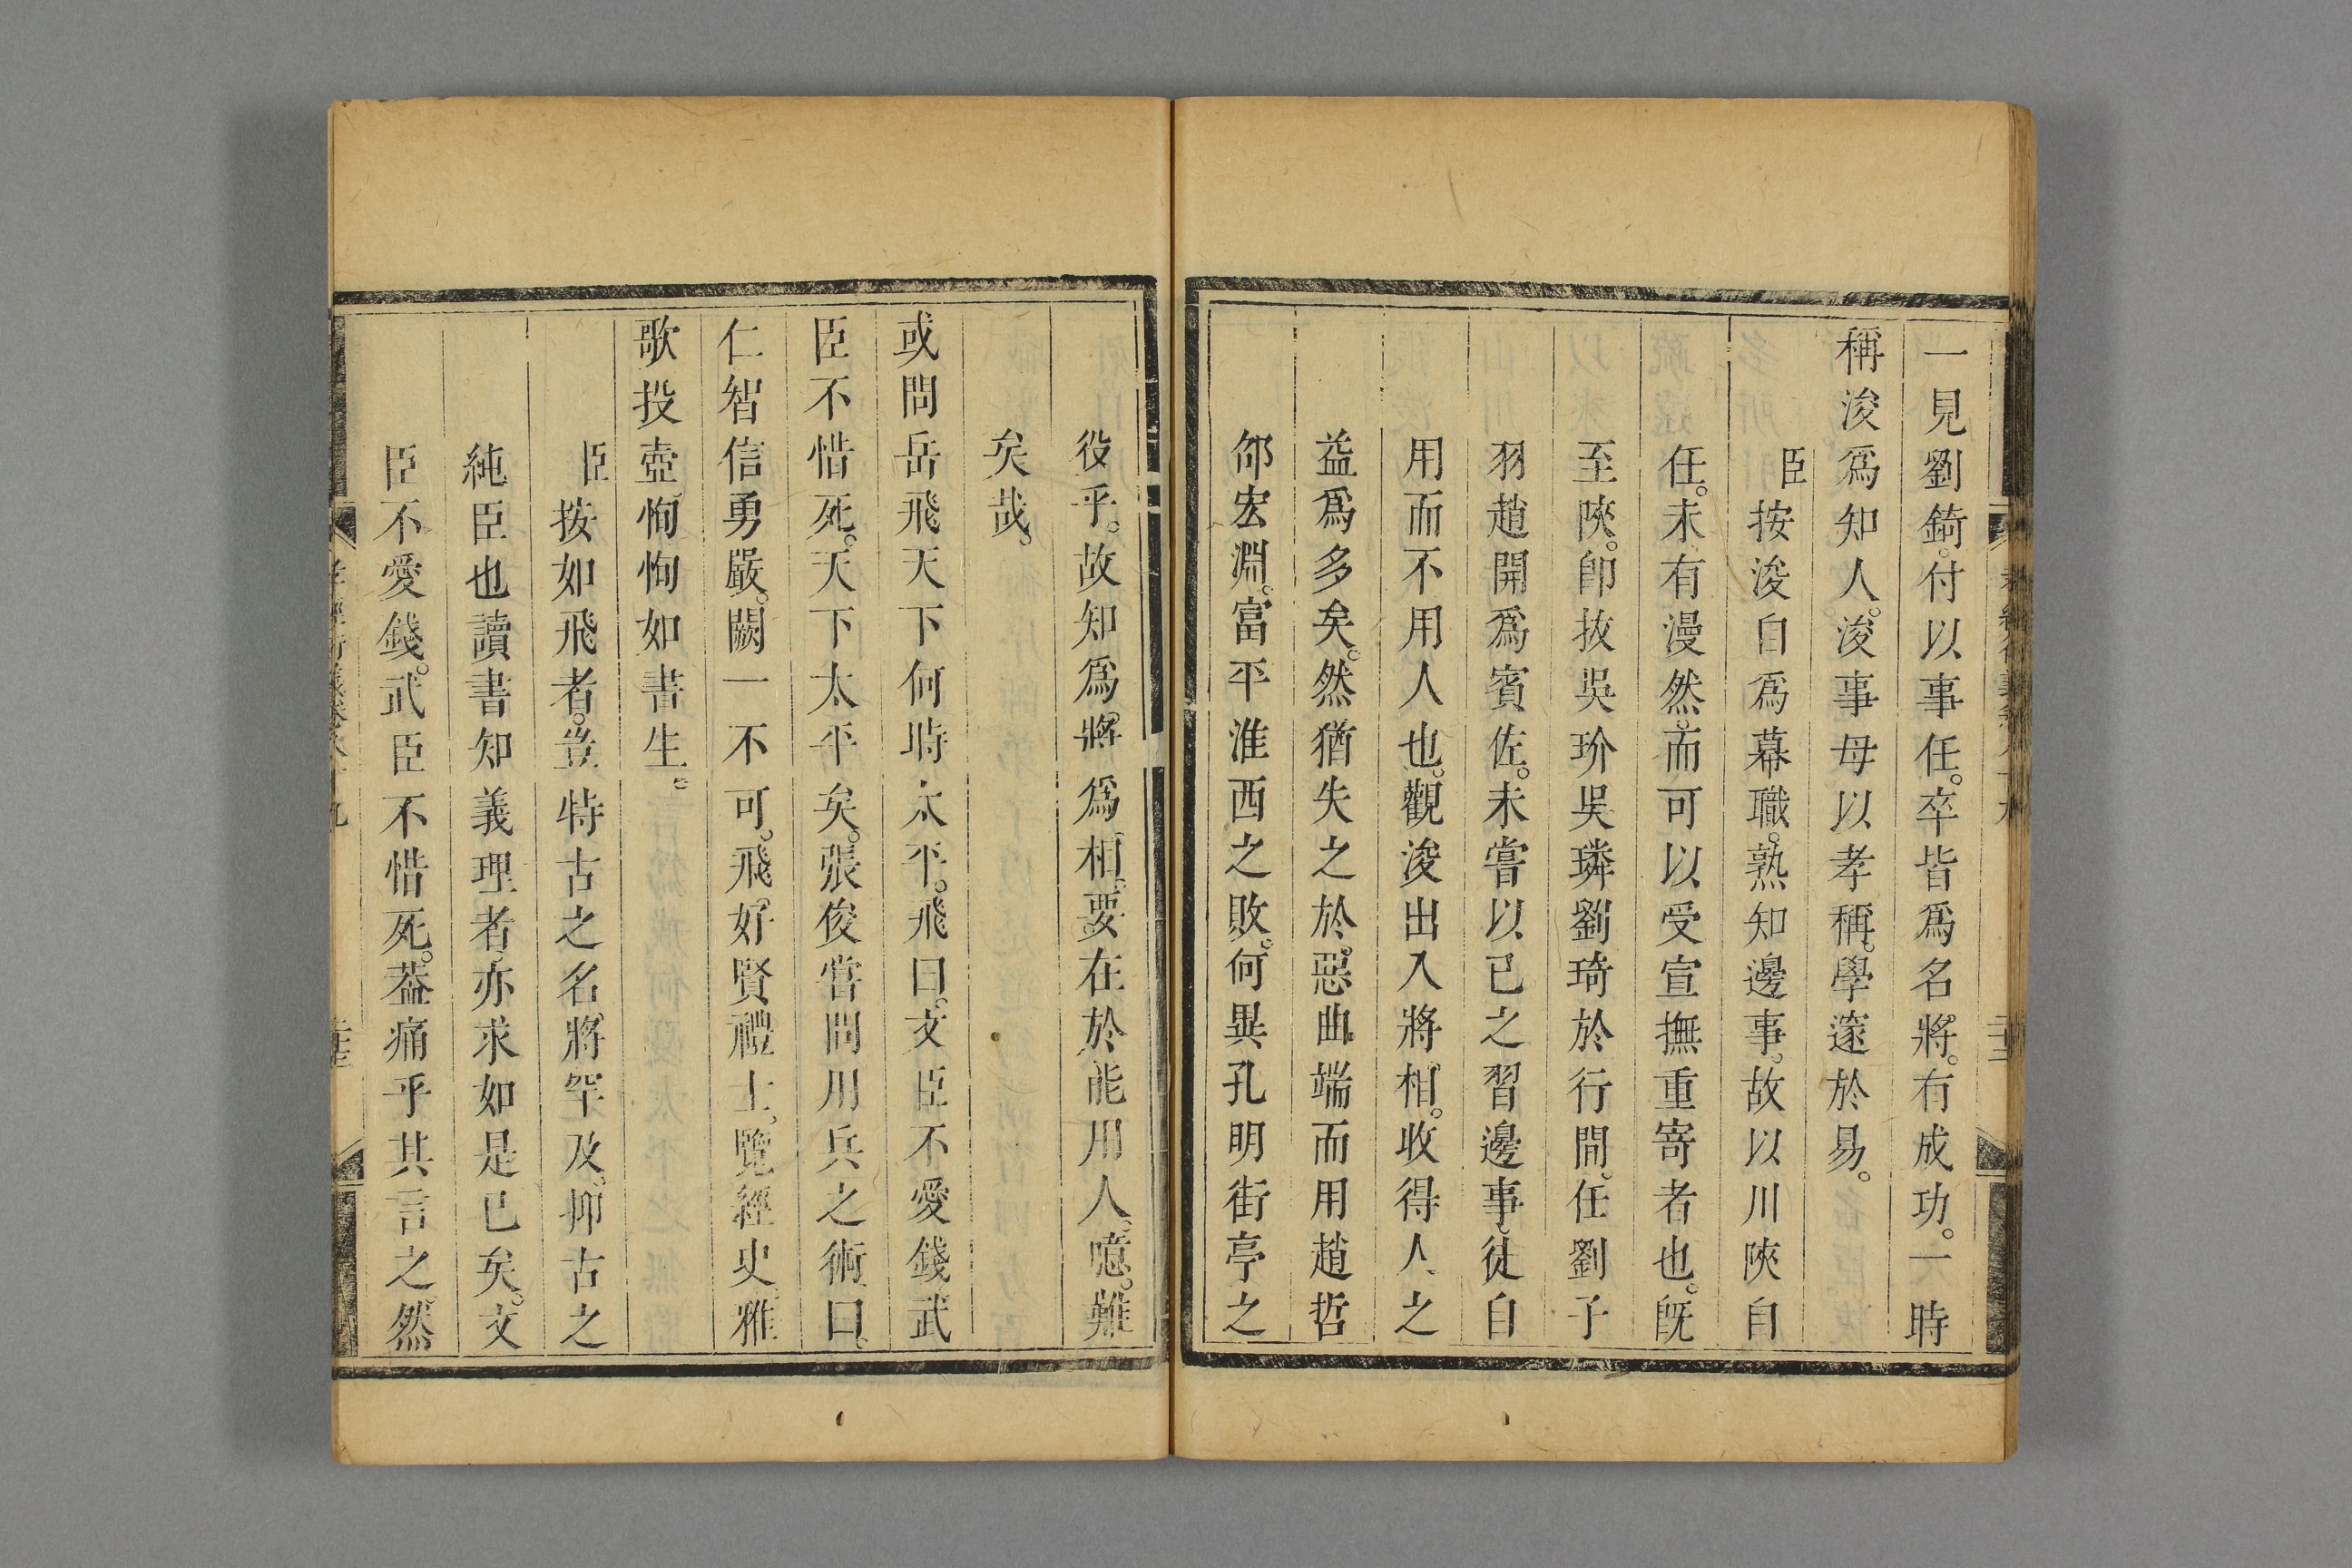 一見劉錡。付以事任。卒皆爲名將。有成功。一時
稱浚爲知人。浚事母以孝稱。學邃於易。
臣按浚自爲幕職。熟知邊事。故以川陝自
任。未有漫然。而可以受宣撫重寄者也。旣
至陝。卽拔吳玠吳璘劉琦於行間。任劉子
羽趙開爲賓佐。未嘗以已之習邊事。徒自
用而不用人也。觀浚出入將相。收得人之
益爲多矣。然猶失之於。惡曲端而用趙哲
邠宏淵。富平淮西之敗。何異孔明街亭之
役乎。故知爲將爲相。要在於能用人。噫。難
矣哉。
或問岳飛天下何時太平。飛曰。文臣不愛錢武
臣不惜死。天下太平矣。張俊嘗問用兵之術。曰。
仁智信勇嚴。闕一不可。飛。好賢禮士。覽經史。雅
歌投壺。恂恂如書生。
臣按如飛者。豈特古之名將罕及。抑古之
純臣也讀書知義理者。亦求如是已矣。文
臣不愛錢。武臣不惜死。葢痛乎其言之。然